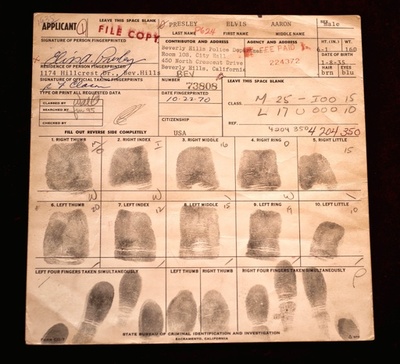 APPLICANT 1
LEAVE THIS SPACE BLANK
FILE COPY
PRESLEY ELVIS AARON
Male
LAST NAME FIRST NAME MIDDLE NAME
P624
SIGNATURE OF PERSON FINGERPRINTED
Elvis A. Presley
RESIDENCE OF PERSON FINGERPRINTED
1174 Hillcrest Dr., Bev. Hills
SIGNATURE OF OFFICIAL TAKING FINGERPRINTS
TYPE OR PRINT ALL REQUESTED DATA
CONTRIBUTOR AND ADDRESS
Beverly Hills Police Department
Room 105, City Hall
450 North Crescent Drive
Beverly Hills, California
BEV
AGENCY AND ADDRESS
FEE PAID
224372
HT. (IN.) WT.
6-1 160
1-8-35
HAIR EYES
brn blu
73808
DATE FINGERPRINTED
10-22-70
CITIZENSHIP
USA
LEAVE THIS SPACE BLANK
CLASS
M 25-I00 15
L 17 U000 10
4204350 4 204 350
CLASSED BY
SEARCHED BY
CHECKED BY
FILL OUT REVERSE SIDE COMPLETELY
1. RIGHT THUMB
2. RIGHT INDEX
3. RIGHT MIDDLE
4. RIGHT RING
5. RIGHT LITTLE
6. LEFT THUMB
7. LEFT INDEX
8. LEFT MIDDLE
9. LEFT RING
10. LEFT LITTLE
LEFT FOUR FINGERS TAKEN SIMULTANEOUSLY
LEFT THUMB
RIGHT THUMB
RIGHT FOUR FINGERS TAKEN SIMULTANEOUSLY
STATE BUREAU OF CRIMINAL IDENTIFICATION AND INVESTIGATION
SACRAMENTO, CALIFORNIA